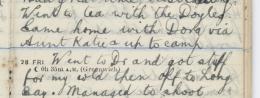 Went to tea with the Doyles
Came home with Dora via
Aunt Katie's up to camp.
28 FRI. Went to Drs and got stuff
☾ 0h 35m A.M. (Greenwich)
for my cold then off to Long
Bay. Managed to shoot